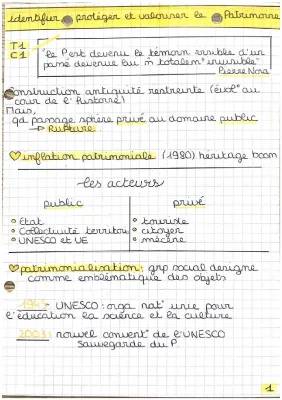 identifier protéger et valoriser le Patrimoine
T1
C1
"le P est devenu le témoin visible d'un
passé devenue lui m totalem° invisible"
Pierre Nora
Construction antiquité restreinte (évol° au
cour de l'histoire)
Mais,
qd passage sphère privé au domaine public
→ Rupture
inflation patrimoniale (1980) héritage boom
les acteurs
public privé
• Etat • touriste
• Collectivité territori • citoyen
• UNESCO et UE • mécène
patrimonialisation: grp social designe
comme emblématique des objets
UNESCO: orga nat° unie pour
l'éducation la science et la culture
2003: nouvel convent° de l'UNESCO
sauvegarde du P
1